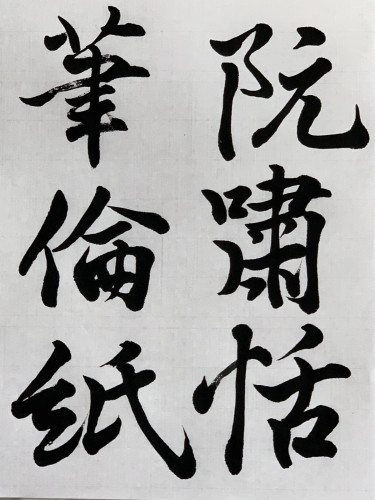 阮嘯恬
筆倫紙